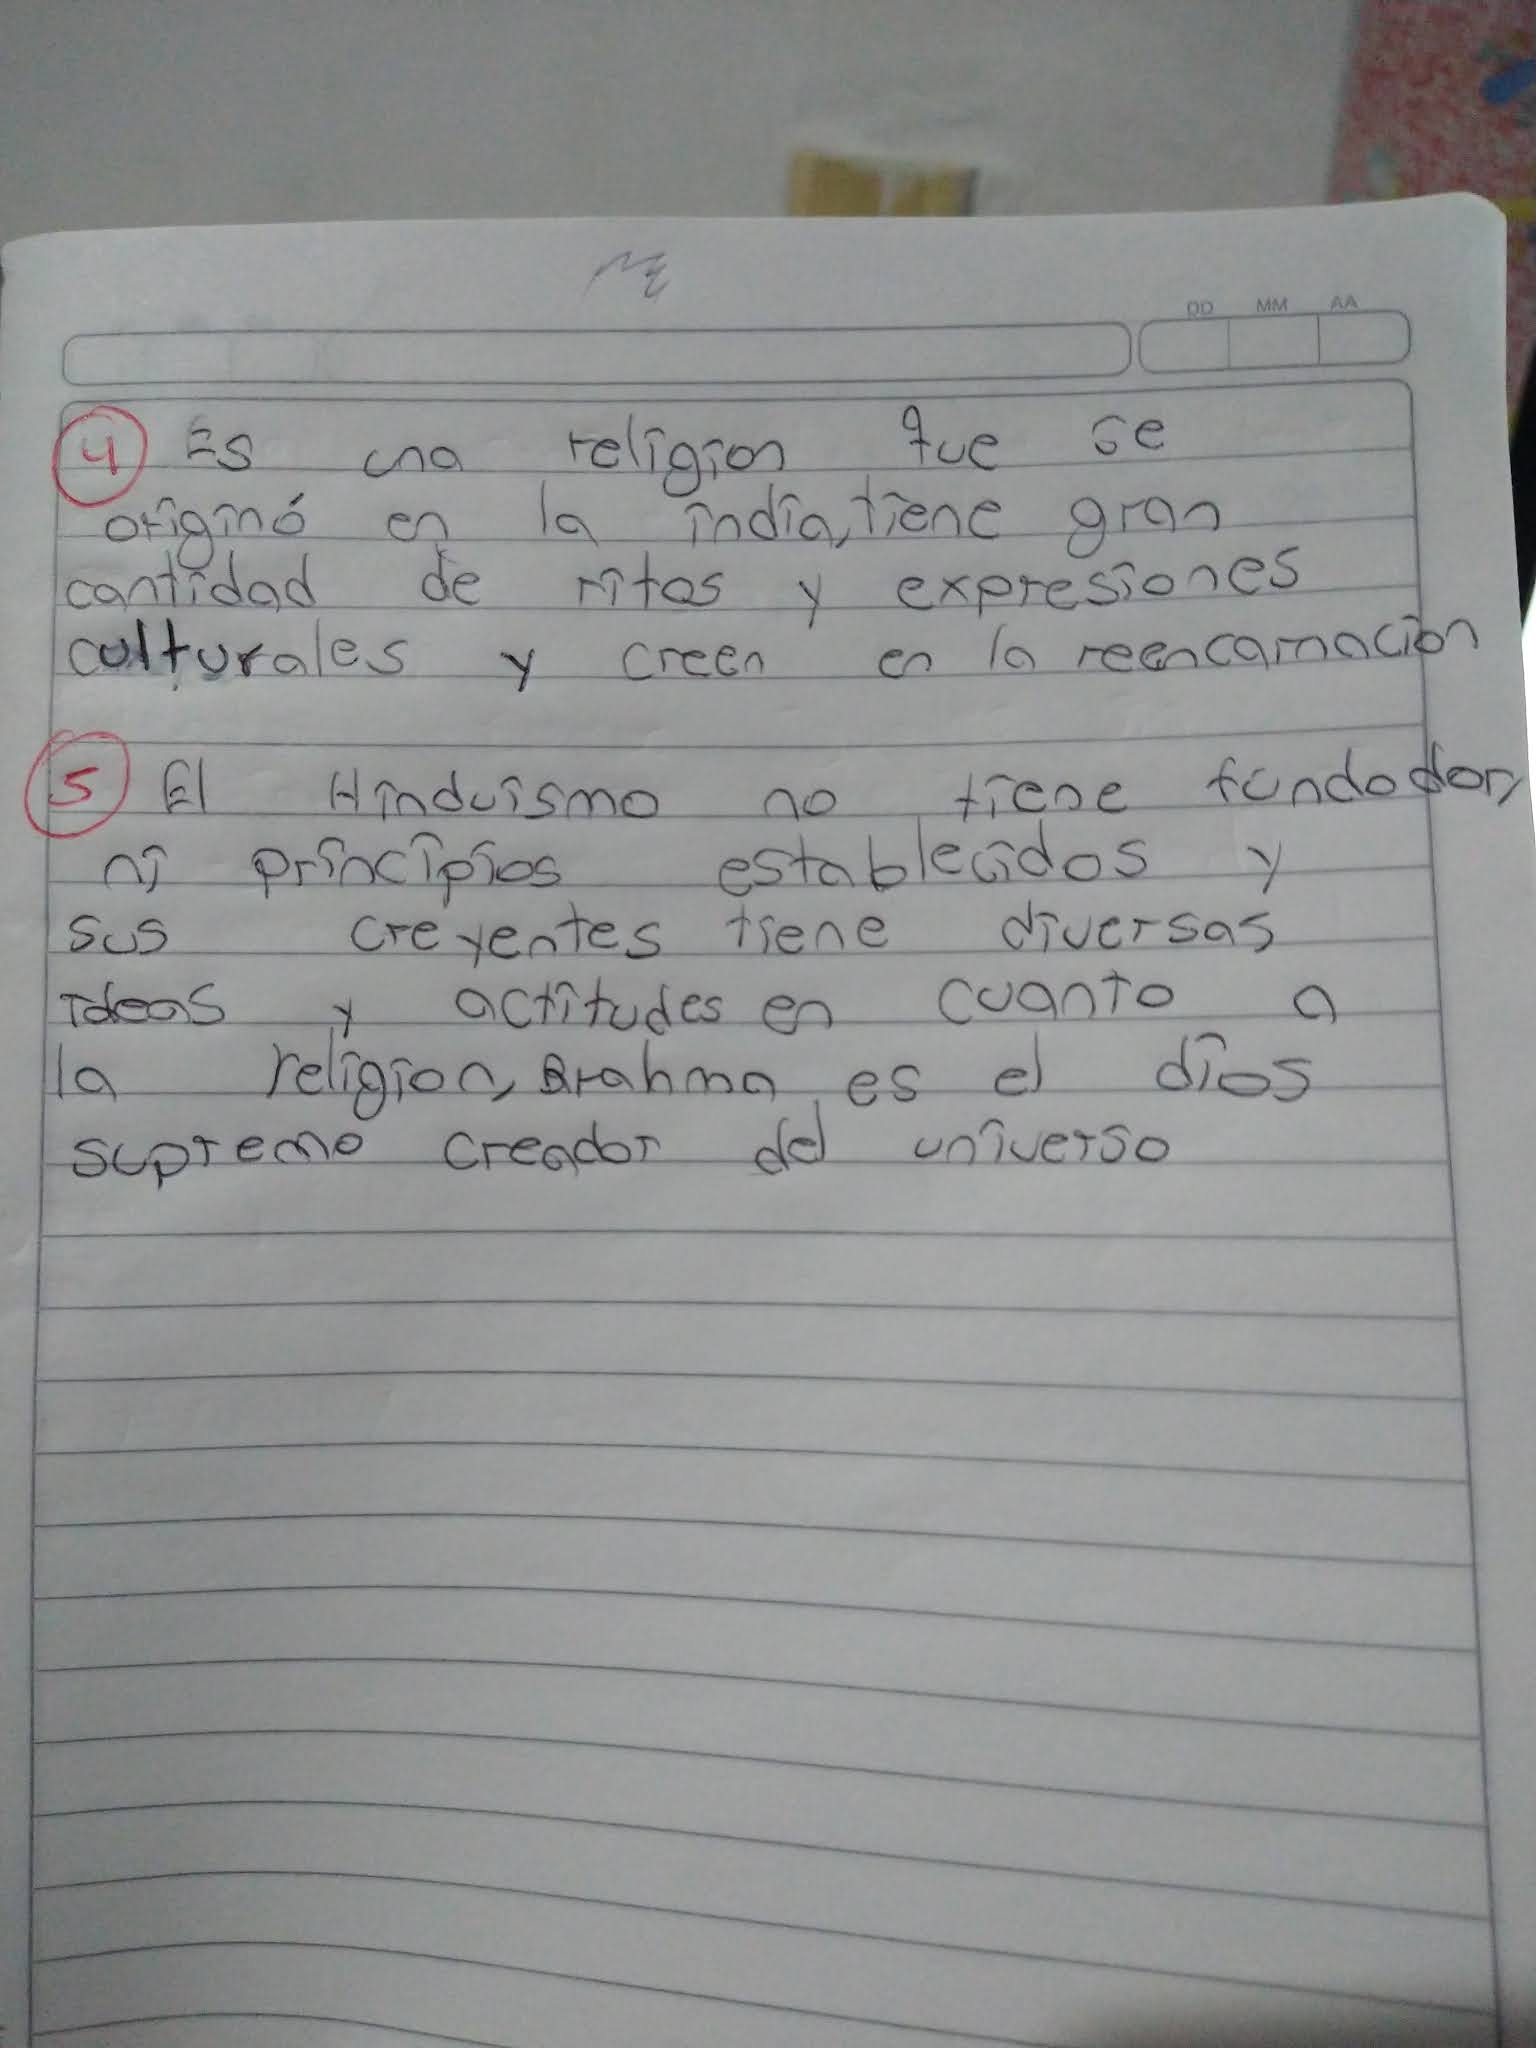 DD MM AA
4 Es una religion que se
originó en la india, tiene gran
cantidad de ritos y expresiones
culturales y creen en la reencarnacion
5 El Hinduismo no tiene fundador,
ni principios establecidos y
sus creyentes tiene diversas
ideas y actitudes en cuanto a
la religion, Brahma es el dios
supremo creador del universo